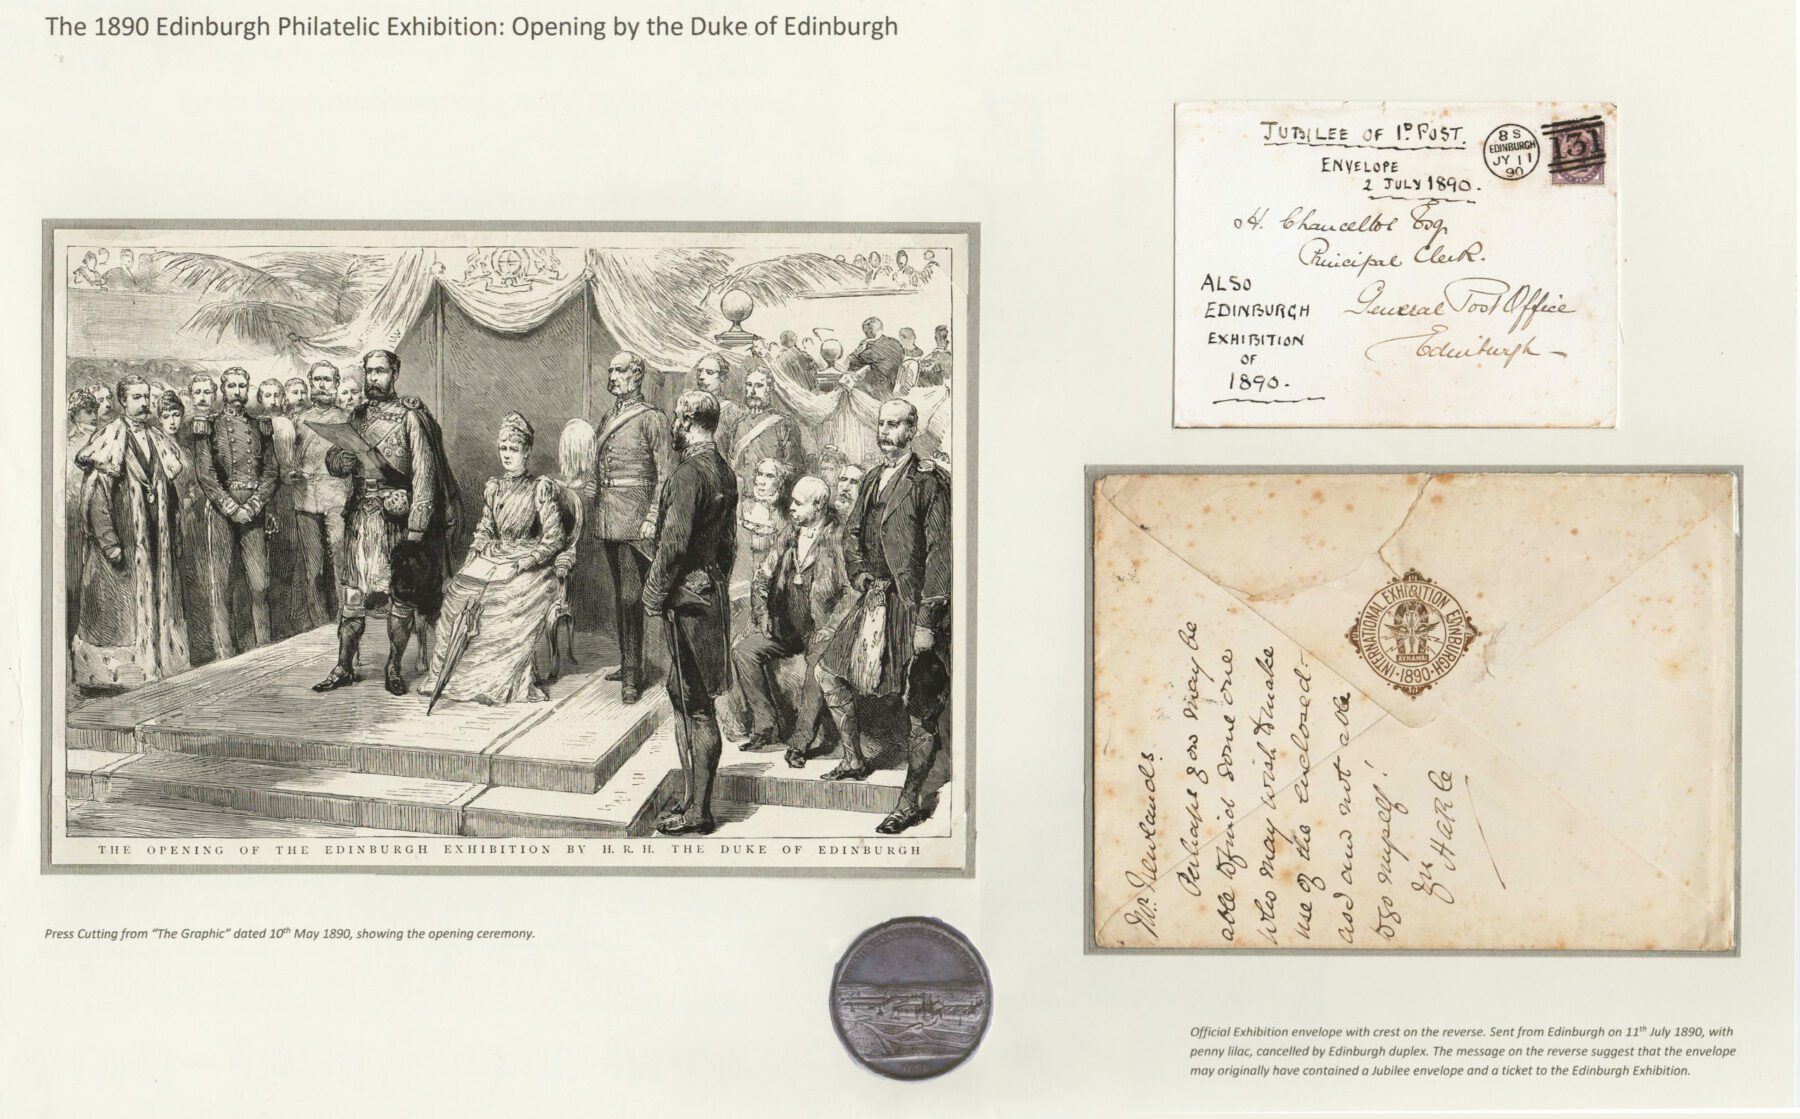 The 1890 Edinburgh Philatelic Exhibition: Opening by the Duke of Edinburgh
THE OPENING OF THE EDINBURGH EXHIBITION BY H.R.H. THE DUKE OF EDINBURGH
Press Cutting from “The Graphic” dated 10th May 1890, showing the opening ceremony.
JUBILEE OF 1D POST.
ENVELOPE
2 JULY 1890.
8 S
EDINBURGH
JY 11
90
131
H. Chancellor Esq
Principal Clerk.
General Post Office
Edinburgh
ALSO
EDINBURGH
EXHIBITION
OF
1890.
INTERNATIONAL EXHIBITION EDINBURGH
1890
Mr. Newlands
Perhaps you may be
able to find some one
who may wish to make
use of the enclosed-
and am not able
to go myself!
Official Exhibition envelope with crest on the reverse. Sent from Edinburgh on 11th July 1890, with
penny lilac, cancelled by Edinburgh duplex. The message on the reverse suggest that the envelope
may originally have contained a Jubilee envelope and a ticket to the Edinburgh Exhibition.